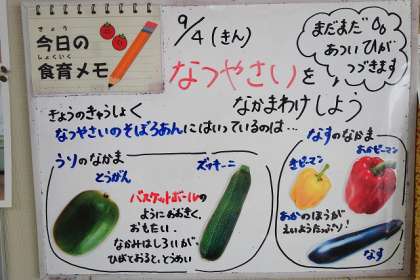 きょう
今日の
しょくいく
食育メモ
9/4(きん)
まだまだ
あついひが
つづきます
なつやさいを
なかまわけしよう
きょうのきゅうしょく
なつやさいのそぼろあんにはいっているのは…
うりのなかま
とうがん
ズッキーニ
バスケットボールの
ようにおおきく、
おもたい。
なかみはしろいが、
ひがとおると、とうめい
なすのなかま
きピーマン
あかピーマン
あかのほうが
えいようたっぷり!
なす